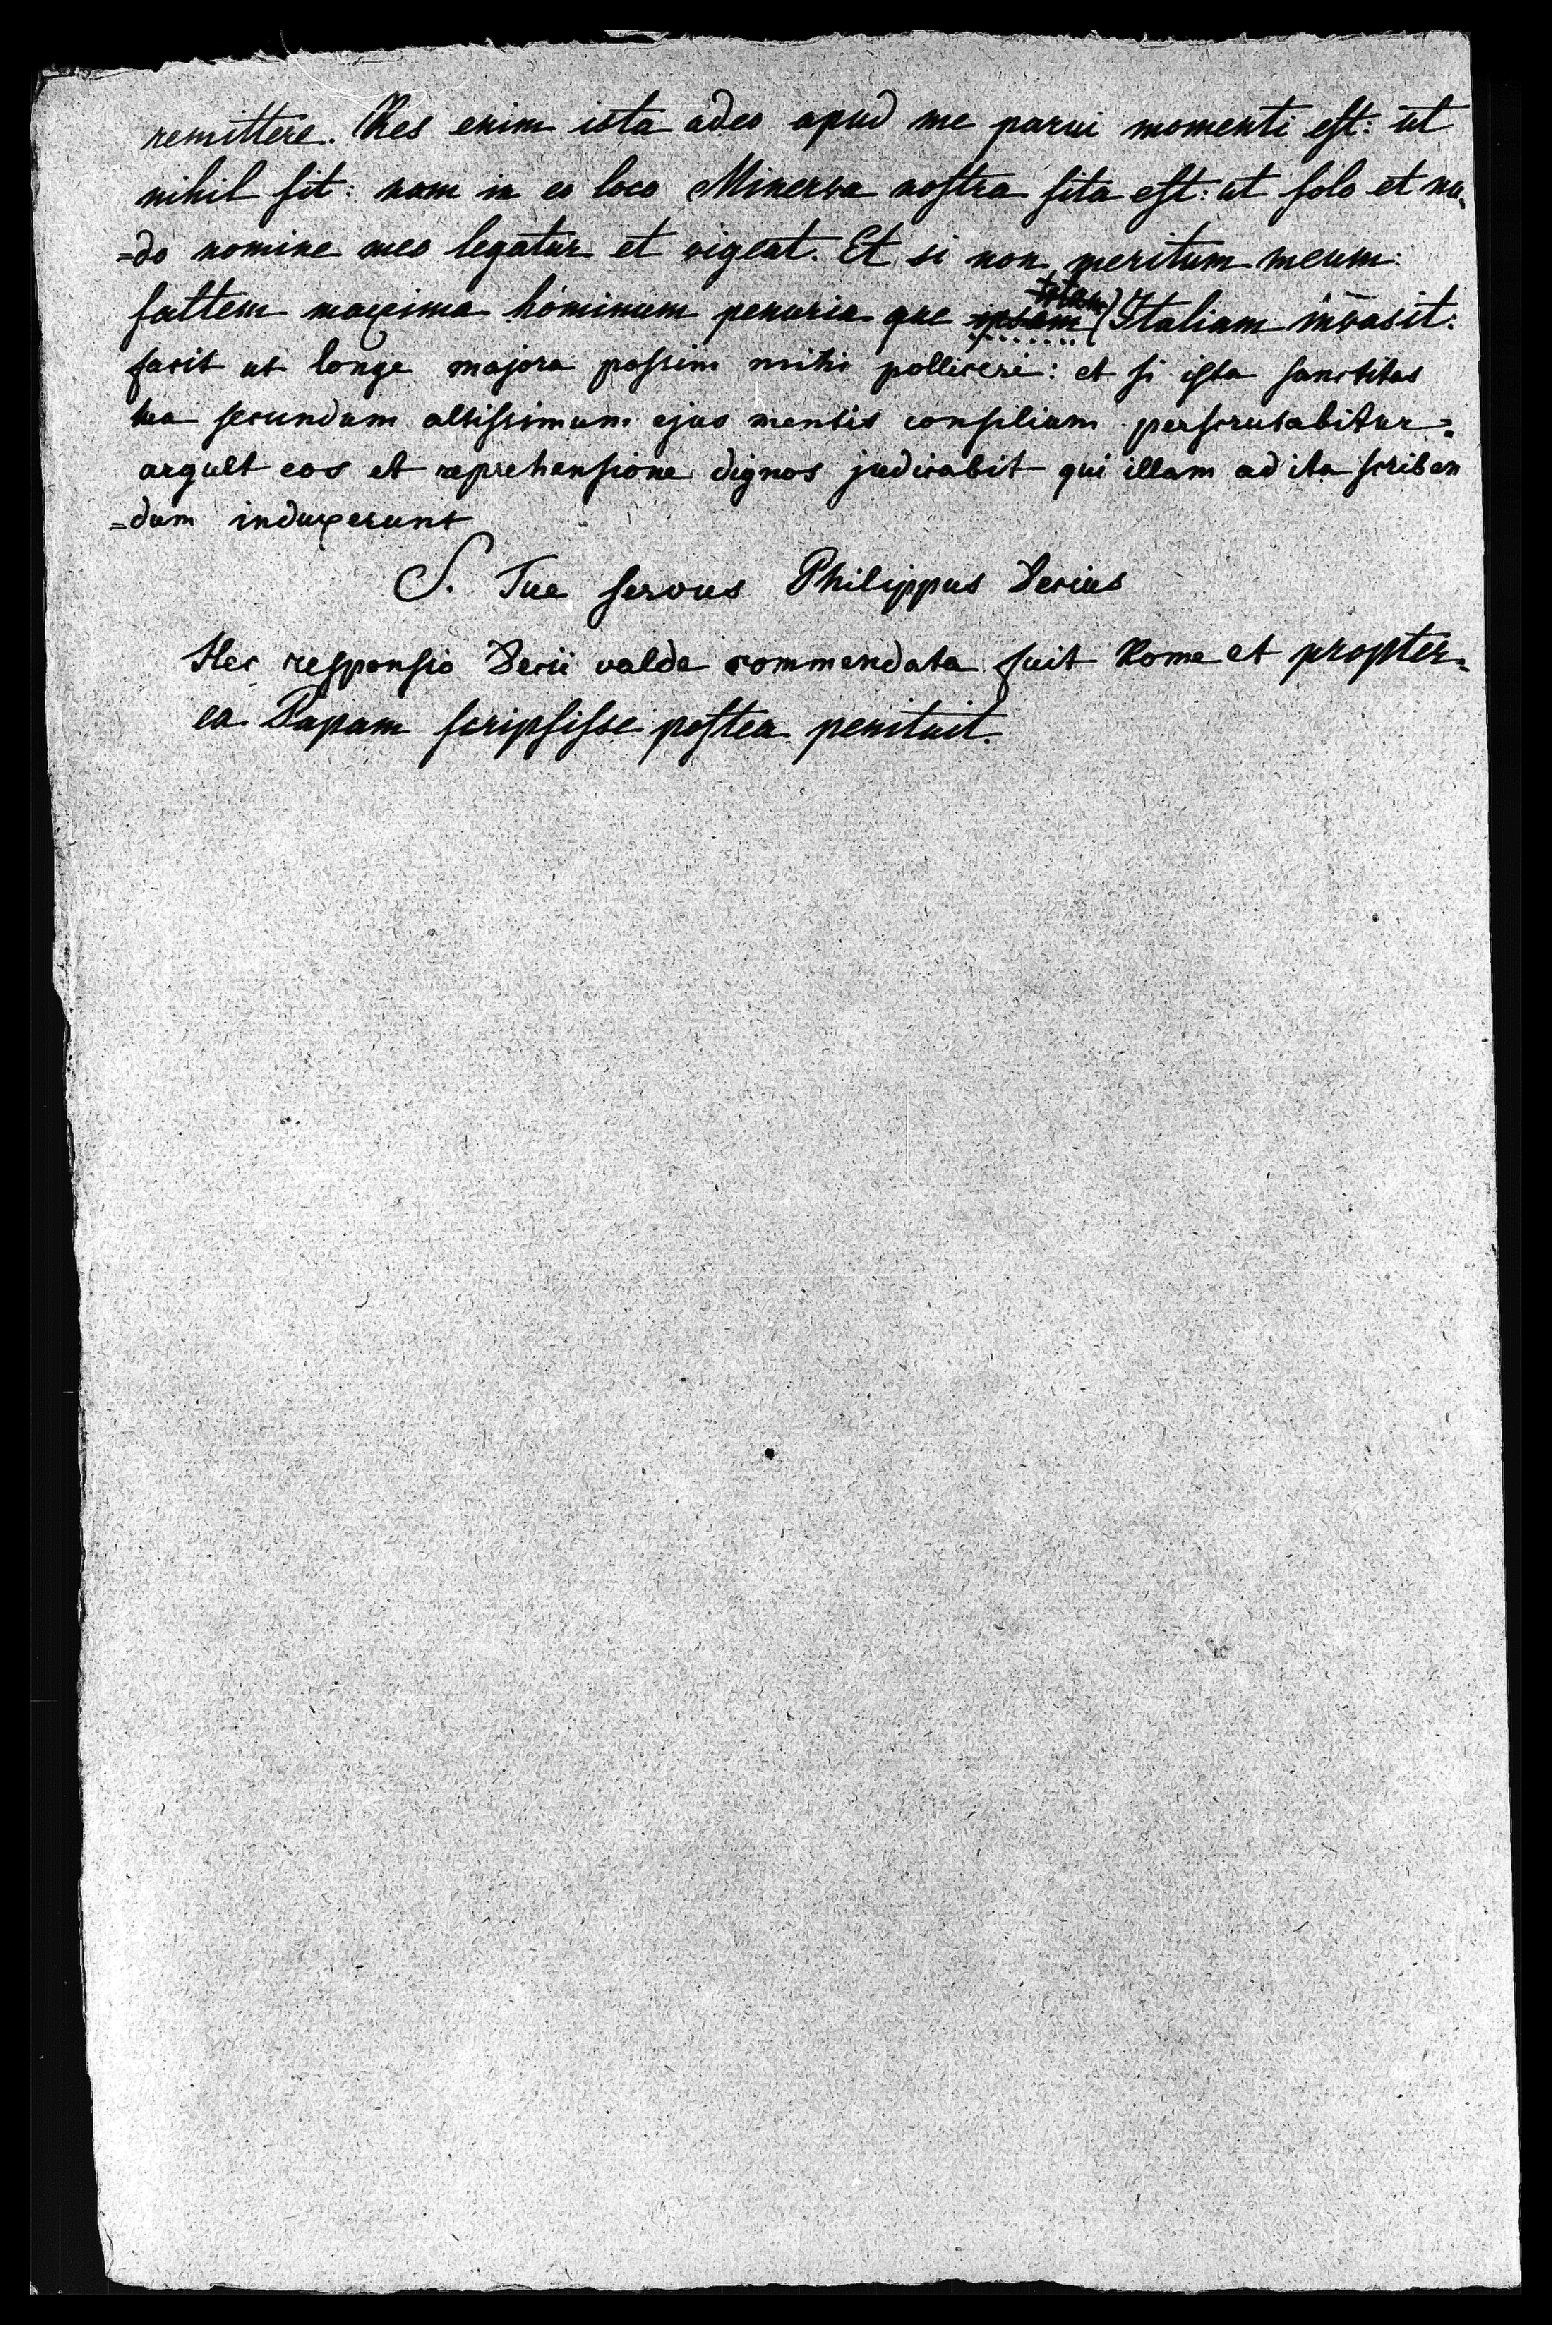 remittere. Res enim ista adeo apud me parui momenti est: ut
nihil sit: nam in eo loco Minerva nostra sita est: ut solo et nu-
=do nomine meo legatur et vigeat. Et si non meritum meum:
saltem maxima hominum penuria que ipsam totam Italiam invasit:
facit ut longe majora possim mihi polliceri: et si ista sanctitas
tua secundum altissimum ejus mentis consilium perscrutabitur=
arguet eos et reprehensione dignos judicabit qui illam ad ita scriben
=dum induxerunt
S. Tue servus Philippus Decius
Hec responsio Decii valde commendata fuit Rome et propter=
ea Papam scripsisse postea penituit.